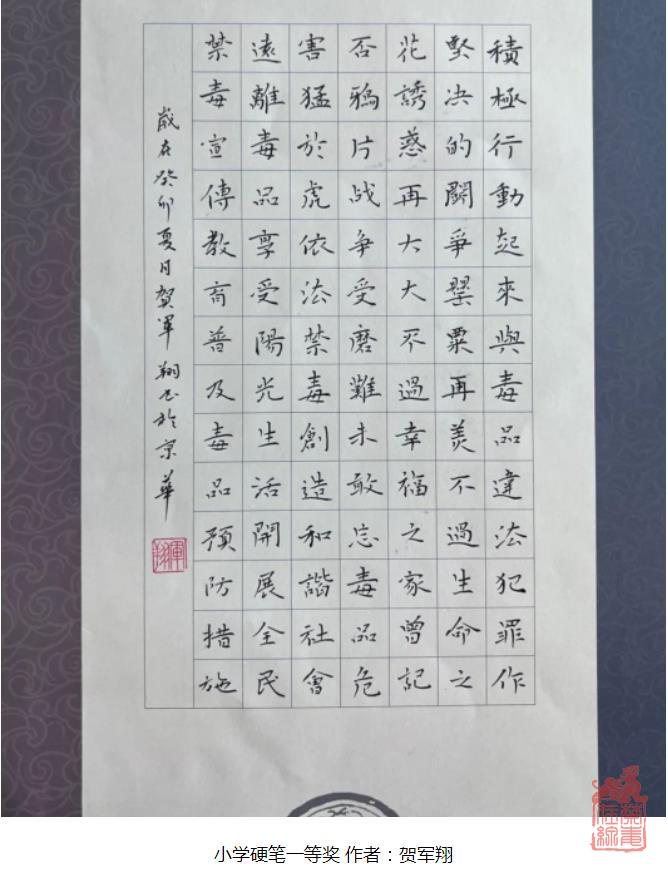 積極行動起來與毒品違法犯罪作
堅决的鬭爭罌粟再美不過生命之
花誘惑再大大不過幸福之家曾記
否鴉片战争受磨難未敢忘毒品危
害猛於虎依法禁毒創造和諧社會
遠離毒品享受陽光生活開展全民
禁毒宣傳教育普及毒品預防措施
歲在癸卯夏月賀軍翔书於京華
軍翔
小学硬笔一等奖 作者：贺军翔